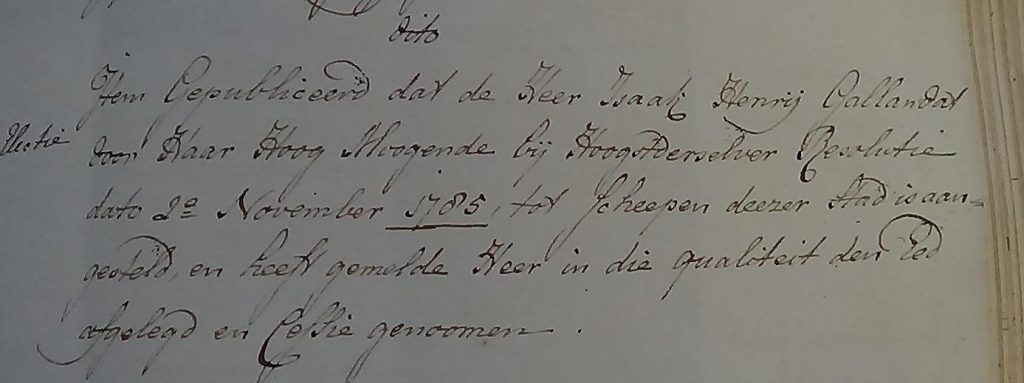 dito
Item Gepubliceerd dat de Heer Isaak Henrij Gallandat
Electie
door Haar Hoog Moogende bij Hoogstderselver Resolutie
dato 2e November 1785, tot Scheepen deezer Stad is aan=
gesteld, en heeft gemelde Heer in die qualiteit den Eed
afgelegd en Cessie genoomen.